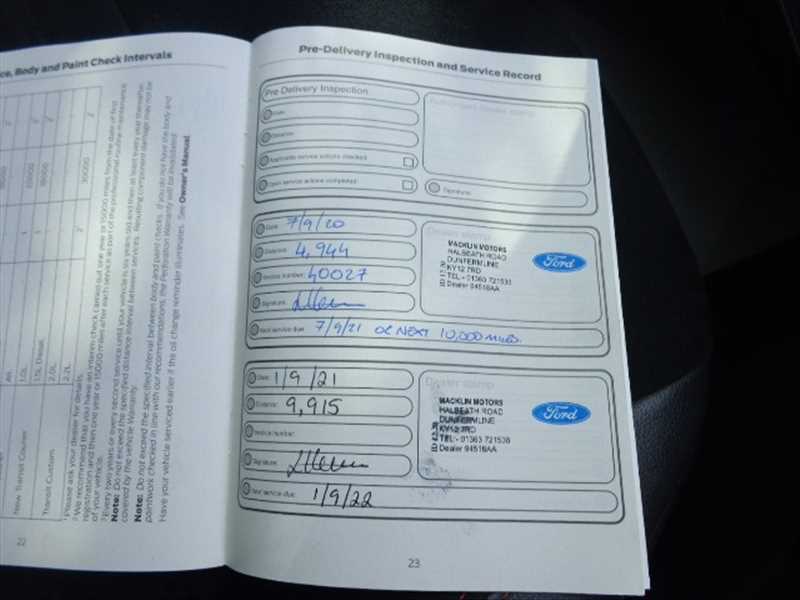 ce, Body and Paint Check Intervals
New Transit Courier
Transit Custom
All
1.0L
1.5L Diesel
2.0L
2.2L
Please ask your dealer for details.
We recommend that you have an interim check carried out one year or 15000 miles from the date of first
registration and then one year or 15000 miles after each service as part of the professional routine maintenance
of your vehicle.
Every two years or every second service until your vehicle is six years old and then at least every year thereafter.
Note: Do not exceed the specified distance interval between services. Resulting component damage may not be
covered by the vehicle Warranty.
Note: Do not exceed the specified interval between body and paint checks. If you do not have the body and
paintwork checked in line with our recommendations, the Perforation Warranty will be invalidated.
Have your vehicle serviced earlier if the oil change reminder illuminates. See Owner's Manual.
22
Pre-Delivery Inspection and Service Record
Pre Delivery Inspection
Date:
Distance:
Applicable service actions checked:
Open service actions completed:
Signature:
Date: 7/9/20
Distance: 4,944
Invoice number: 40027
Signature:
Next service due: 7/9/21 OR NEXT 10,000 MILES.
Dealer stamp
MACKLIN MOTORS
HALBEATH ROAD
DUNFERMLINE
KY12 7RD
TEL:- 01383 721536
Dealer 94516AA
Ford
Date: 1/9/21
Distance: 9,915
Invoice number:
Signature:
Next service due: 1/9/22
Dealer stamp
MACKLIN MOTORS
HALBEATH ROAD
DUNFERMLINE
KY12 7RD
TEL:- 01383 721536
Dealer 94516AA
Ford
23